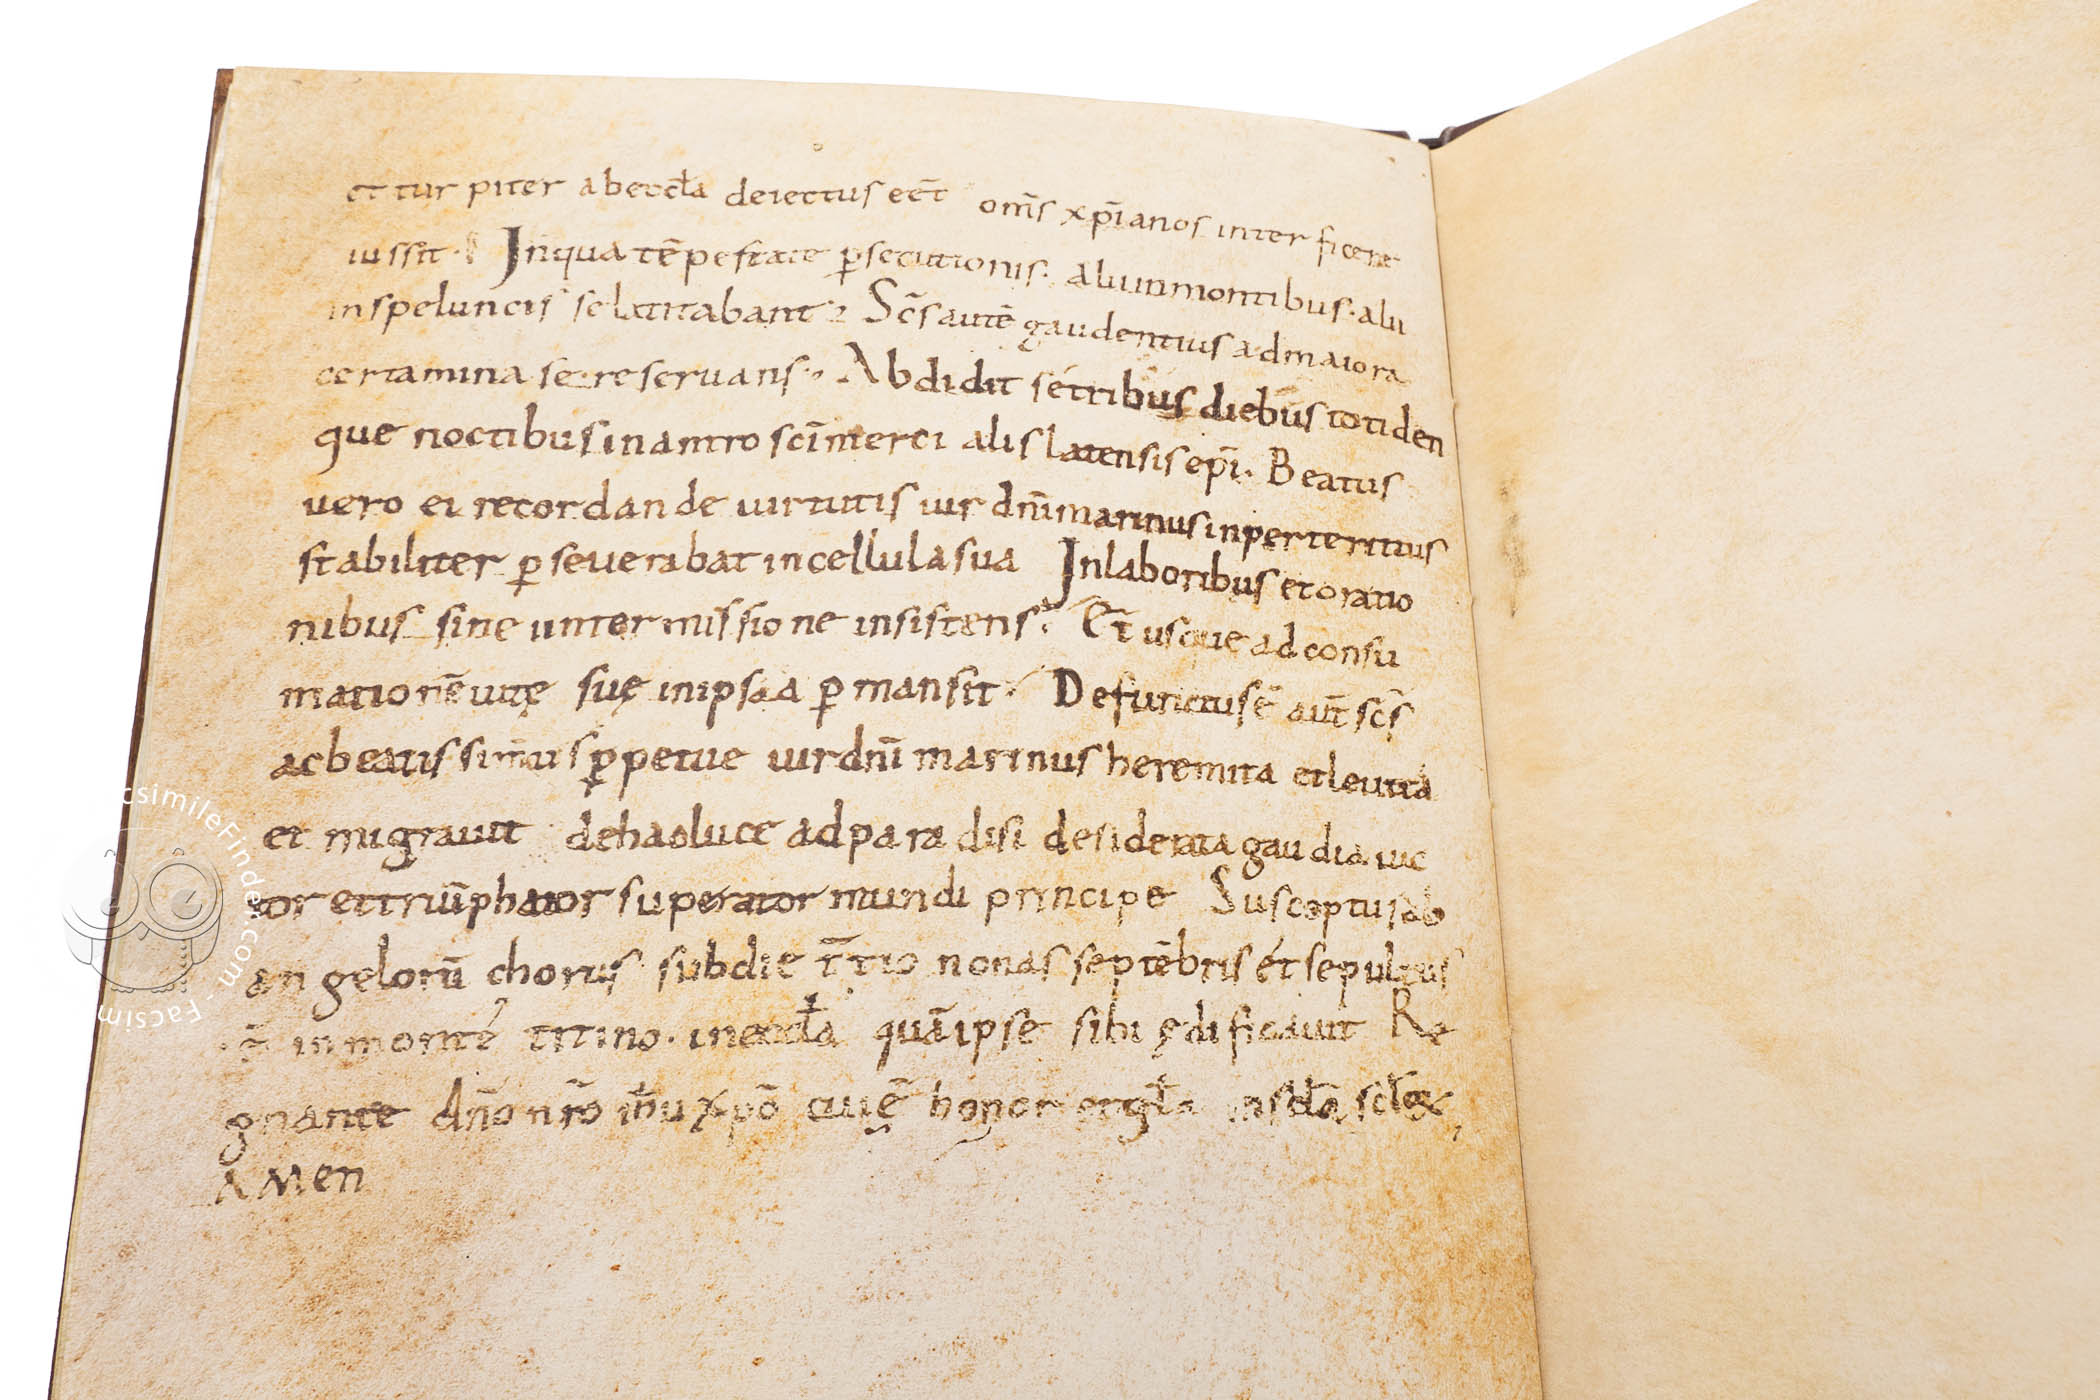 et turpiter ab eccła deiectus eēt om̄s xp̄ianos interficere
iussit. In qua tēpestate ꝑsecutionis. alii in montibus. alii
in speluncis se latitabant. Sc̄s autē gaudentius ad maiora
certamina se reseruans. Abdidit se tribus diebus totiden
que noctibus in antro sc̄i mercialis latensis ep̄i. Beatus
uero ei recordande uirtutis uir dn̄i marinus inperterritus
stabiliter ꝑseuerabat in cellula sua In laboribus et oratio
nibus sine intermissione insistens. Et usque ad consu
mationē uitę suę in ipsa ꝑmansit. Defunctus ē aut̄ sc̄s
ac beatissimus ꝑpetue uir dn̄i marinus heremita et leuita
et migrauit de hac luce ad paradisi desiderata gaudia uic
tor et triūphator superator mundi principe Susceptus ab
angelorū chorus sub die t̄tio nonas septēbris et sepultus
in monte titino. in eccła quā ipse sibi ędificauit Re
gnante dn̄o nr̄o ih̄u xp̄o cui ē honor et gła in scła scłoꝝ,
AMen
FacsimileFinder.com - Facsim